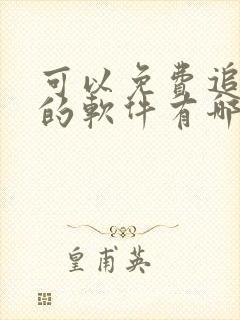 可以免費追
的軟件有哪
皇甫英